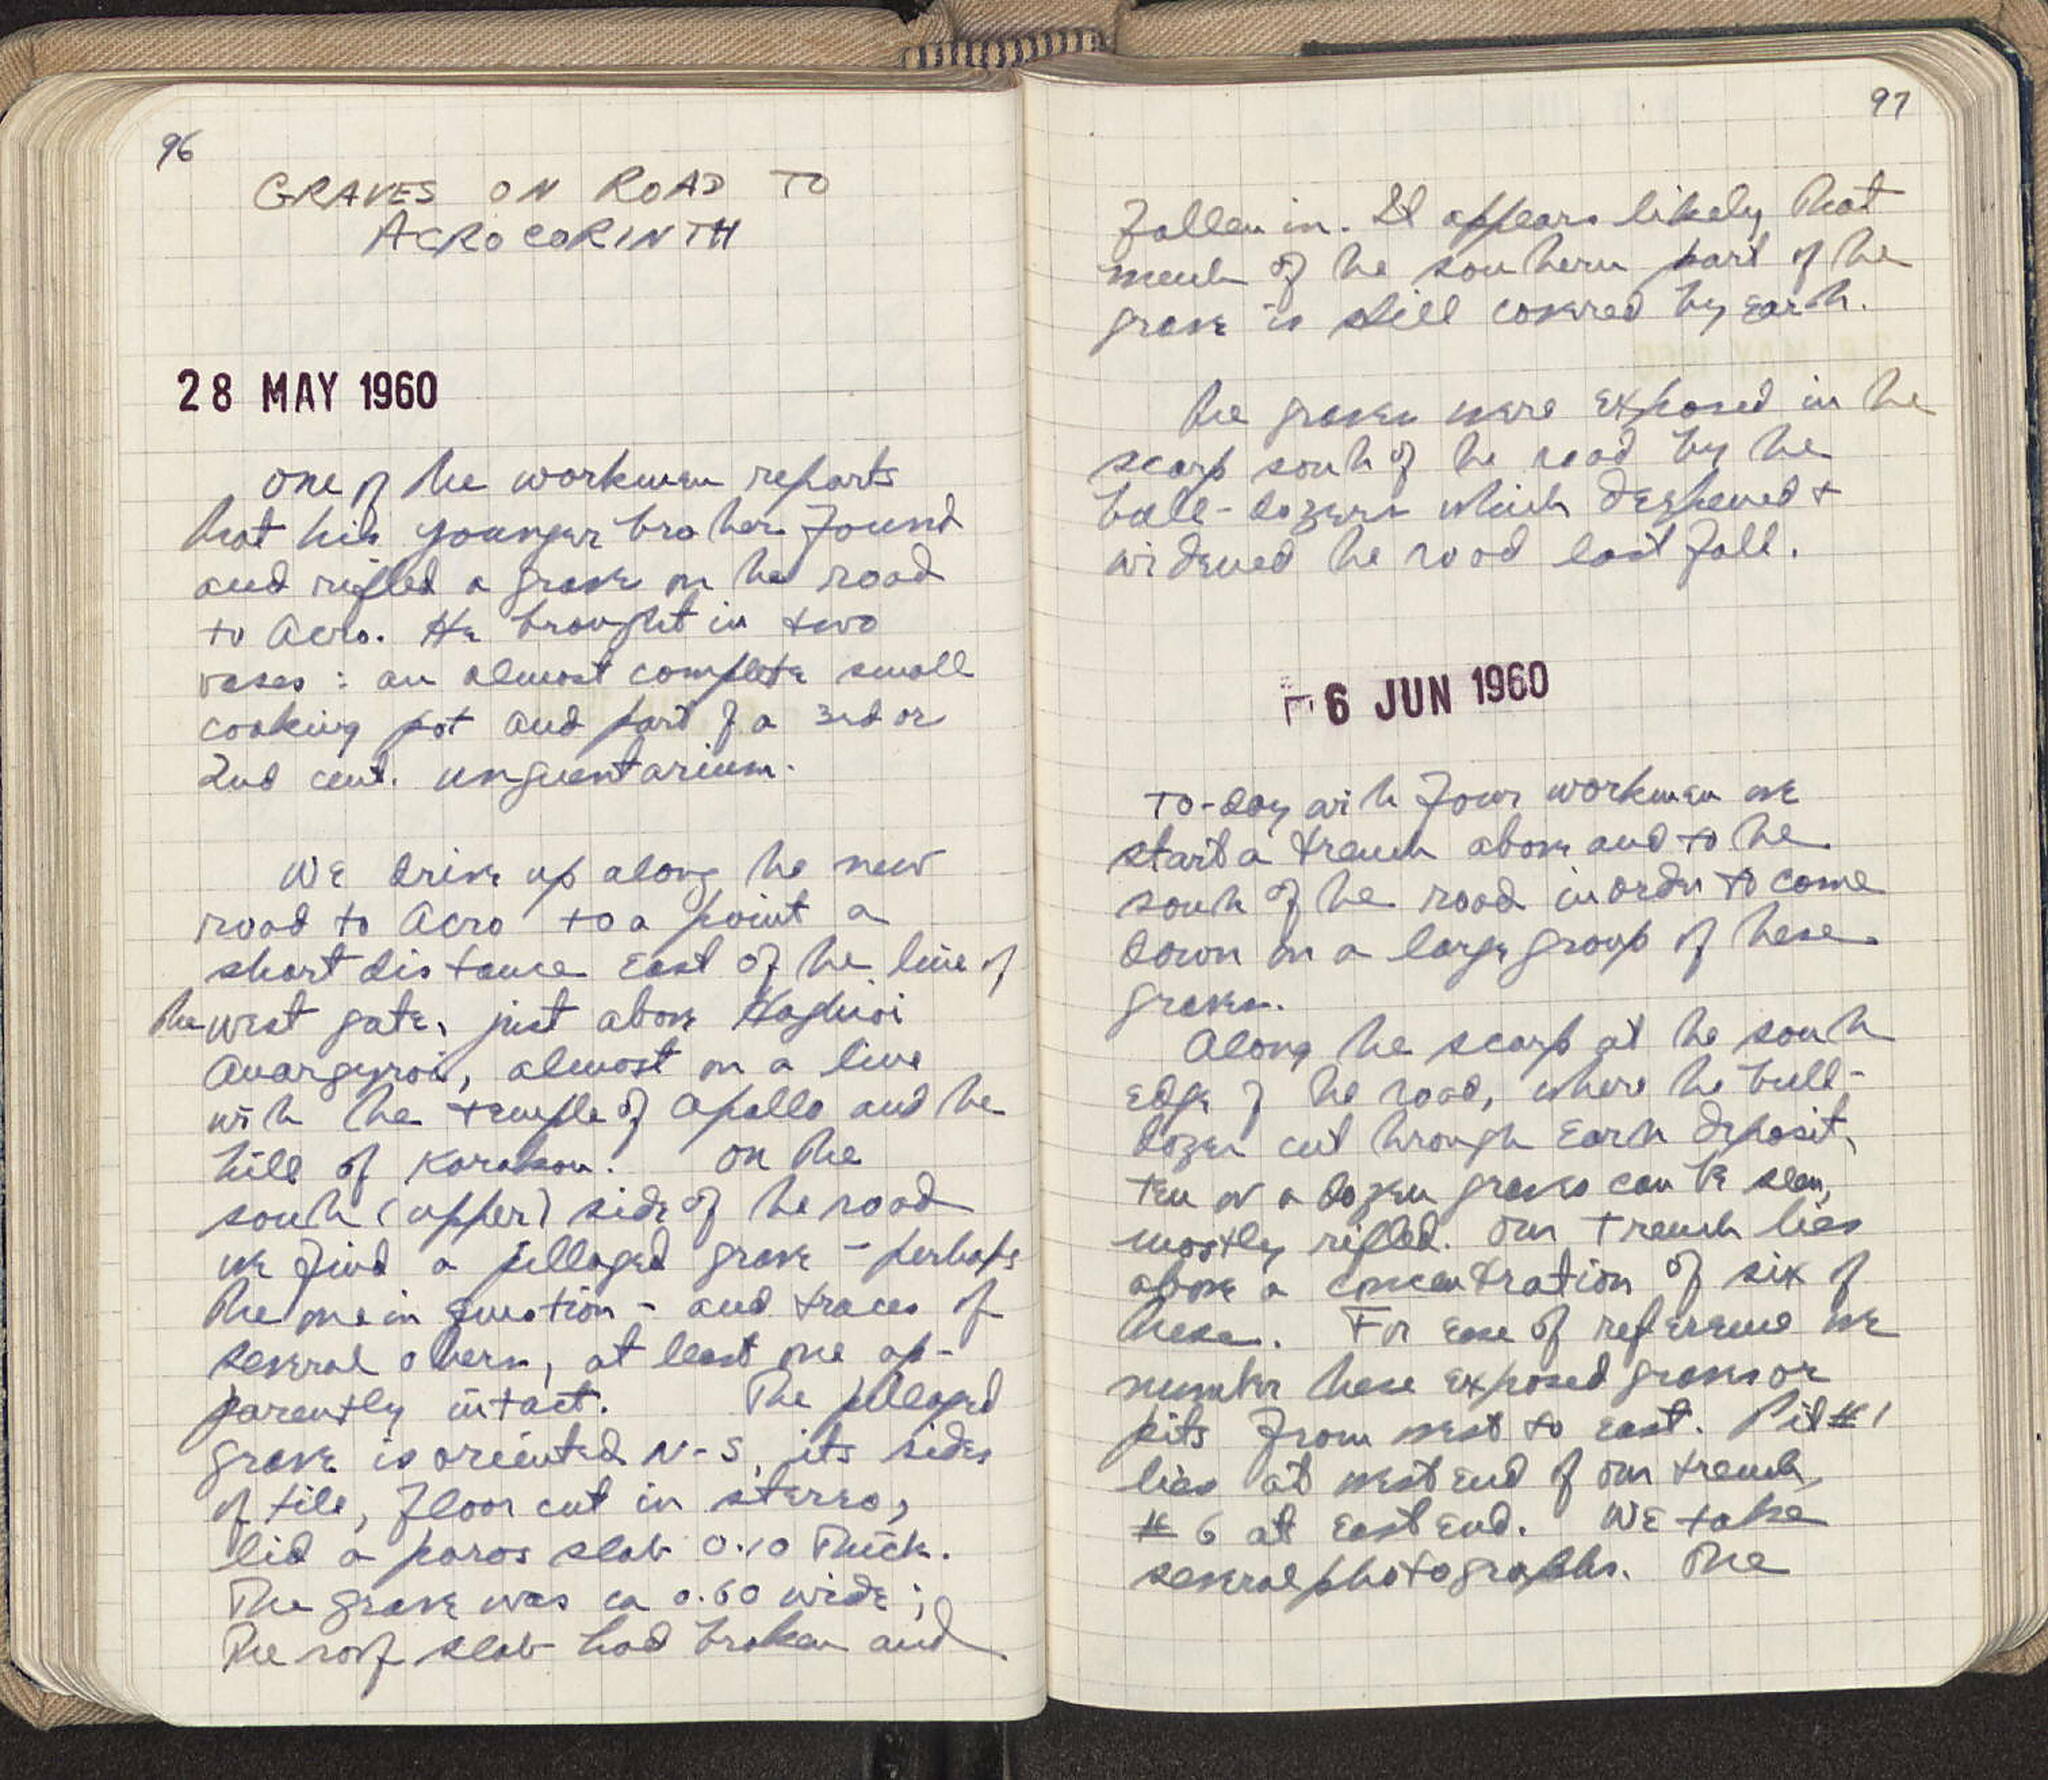 96
GRAVES ON ROAD TO
ACROCORINTH
28 MAY 1960
One of the workmen reports
that his younger brother found
and rifled a grave on the road
to Acro. He brought in two
vases: an almost complete small
cooking pot and part of a 3rd or
2nd cent. unguentarium.
We drive up along the new
road to Acro to a point a
short distance east of the line of
the west gate, just above Haghioi
Anargyroi, almost on a line
with the temple of Apollo and the
hill of Karakou. On the
south (upper) side of the road
we find a pillaged grave - perhaps
the one in question - and traces of
several others, at least one ap-
parently intact. The pillaged
grave is oriented N-S, its sides
of tile, floor cut in stereo,
lid a poros slab 0.10 thick.
The grave was ca 0.60 wide;
the roof slab had broken and
97
fallen in. It appears likely that
much of the southern part of the
grave is still covered by earth.
The graves were exposed in the
scarp south of the road by the
bull-dozers which deepened +
widened the road last fall.
6 JUN 1960
To-day with four workmen we
start a trench above and to the
south of the road in order to come
down on a large group of these
graves.
Along the scarp at the south
edge of the road, where the bull-
dozer cut through earth deposit,
ten or a dozen graves can be seen,
mostly rifled. Our trench lies
above a concentration of six of
these. For ease of reference we
number these exposed graves or
pits from west to east. Pit #1
lies at west end of our trench,
#6 at east end. We take
several photographs. The